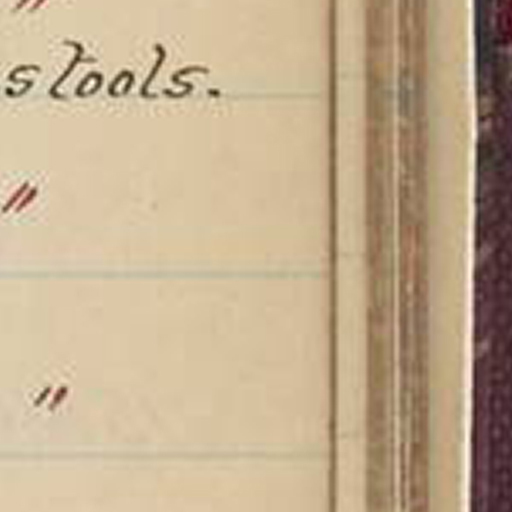 "
stools.
"
"